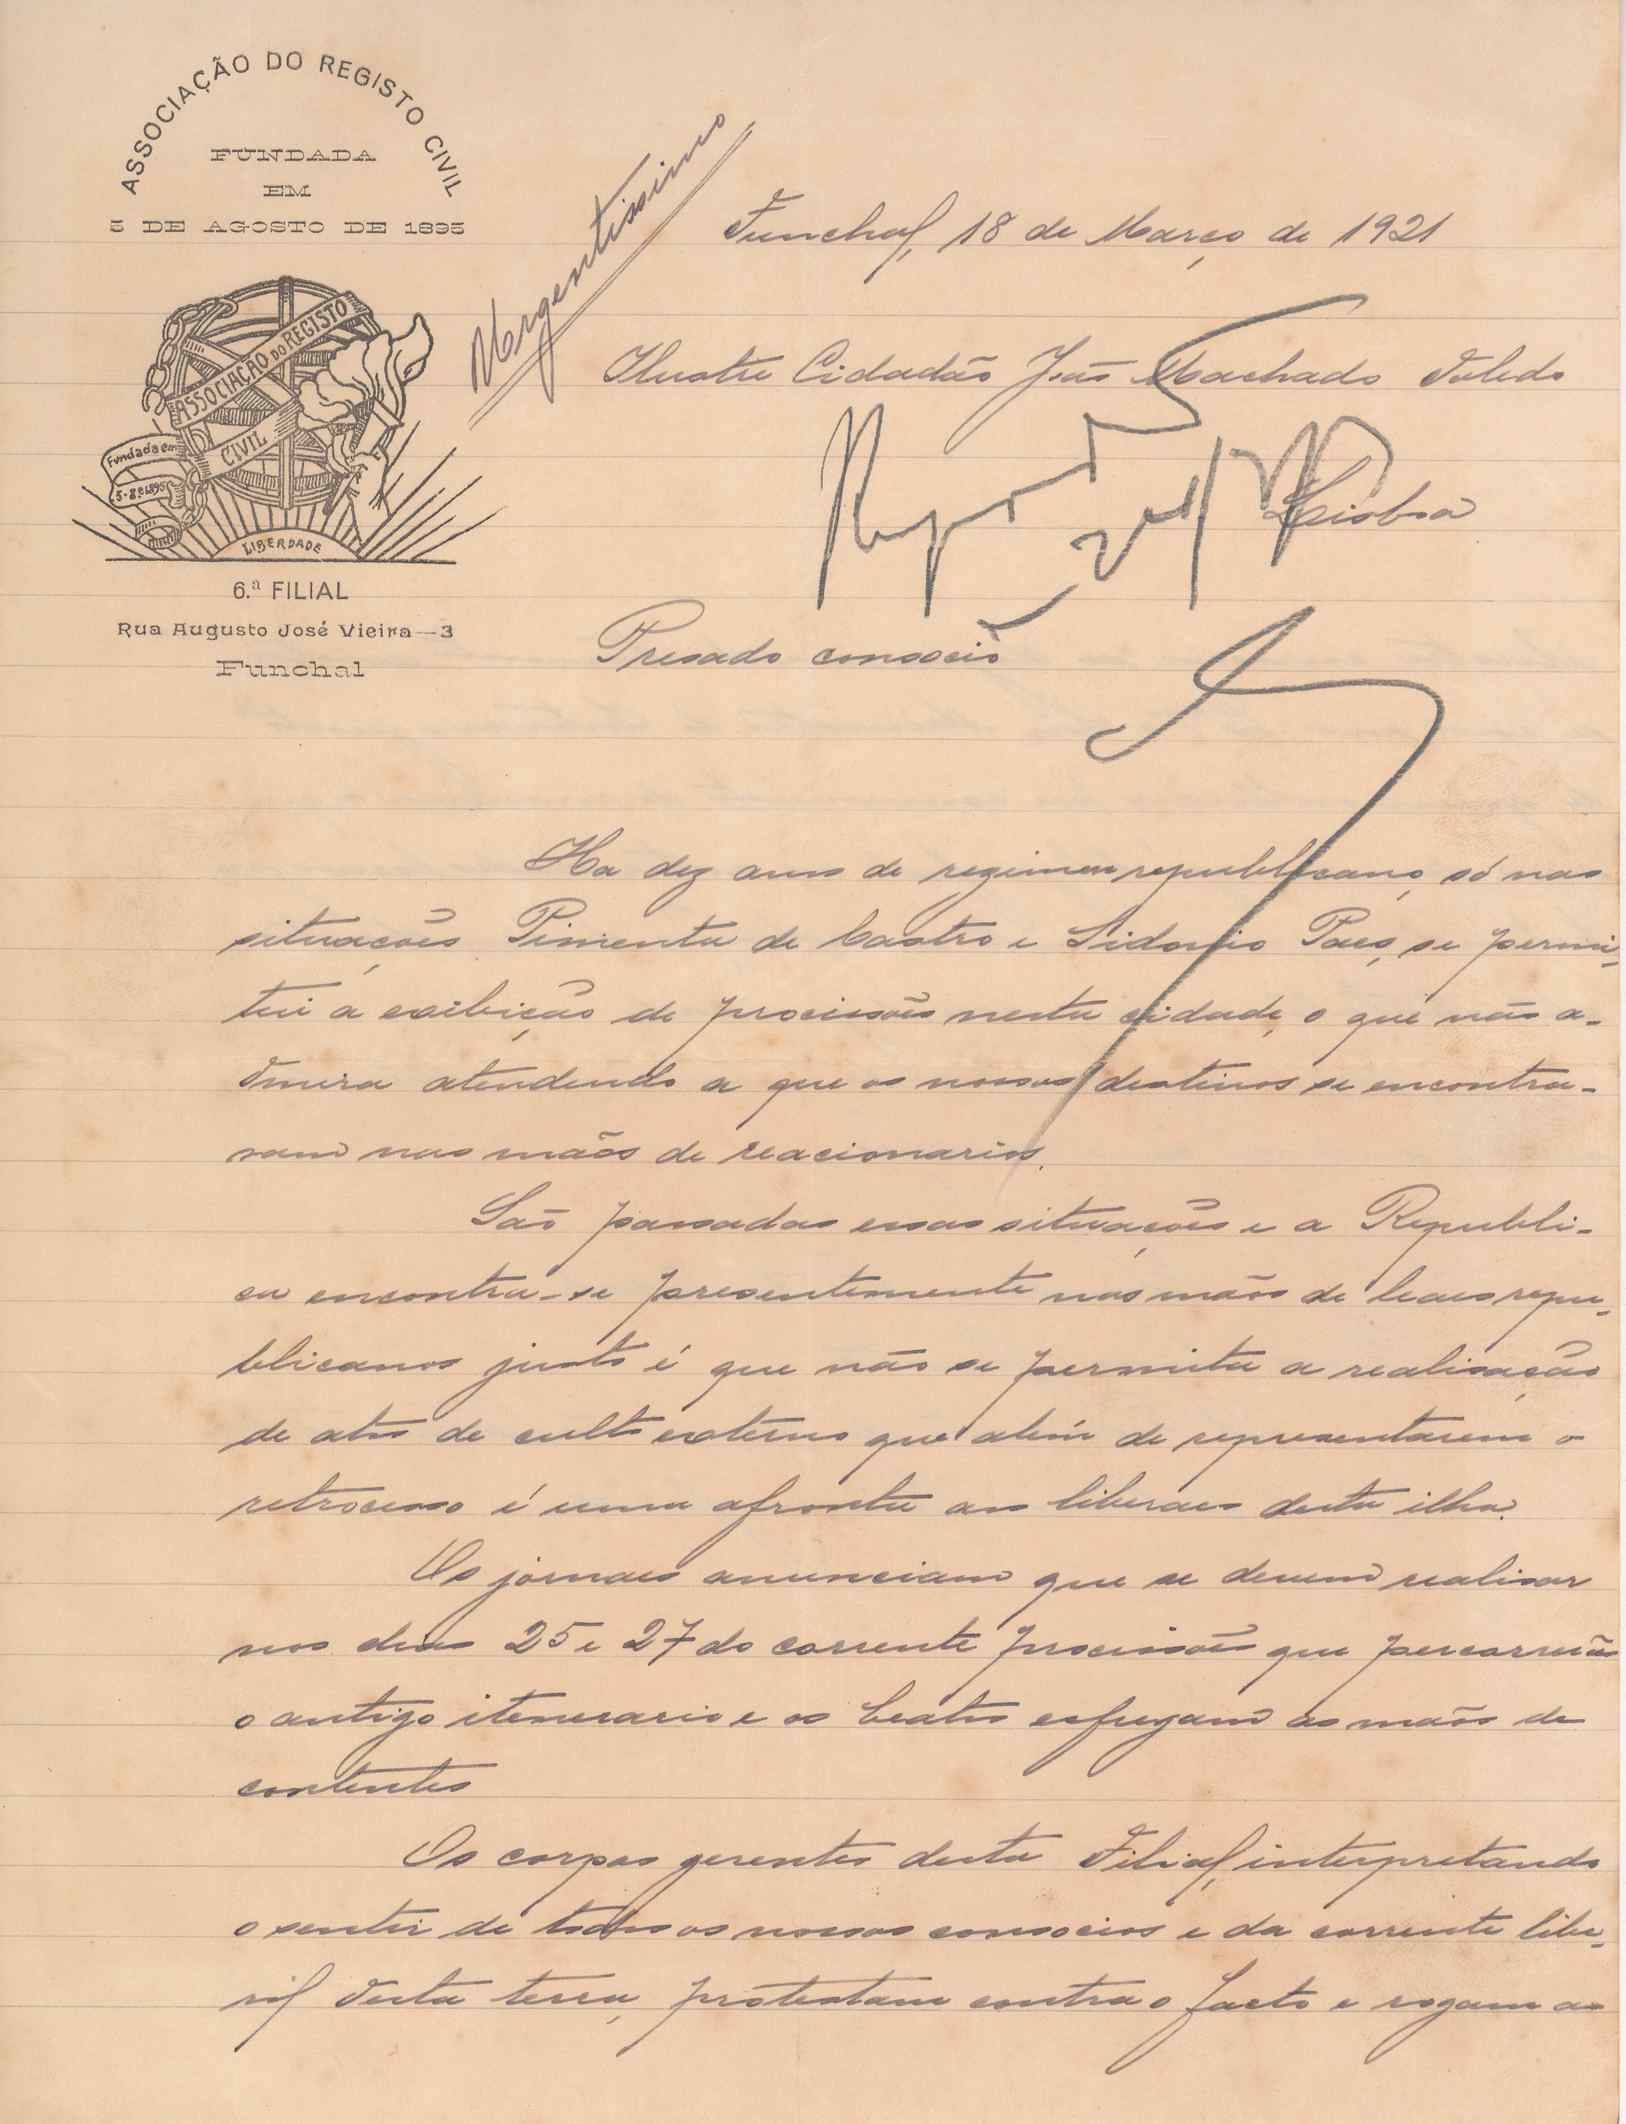 ASSOCIAÇÃO DO REGISTO CIVIL
FUNDADA
EM
5 DE AGOSTO DE 1895
ASSOCIAÇÃO DO REGISTO
CIVIL
Fundada em
5-8-1895
LIBERDADE
6.ª FILIAL
Rua Augusto José Vieira—3
Funchal
Urgentissimo
Funchal, 18 de Março de 1921
Ilustre Cidadão João Machado Toledo
Lisboa
Presado consocio
Ha dez anos de regimen republicano, só nas
situações Pimenta de Castro e Sidonio Paes, se permi-
tiu a exibição de procissões nesta cidade, o que não a-
dmira atendendo a que os nossos destinos se encontra-
vam nas mãos de reacionarios.
São passadas essas situações e a Republi-
ca encontra-se presentemente nas mãos de leaes repu-
blicanos justo é que não se permita a realisação
de atos de culto externo que alêm de representarem o
retrocesso é uma afronta aos liberaes desta ilha.
Os jornaes anunciam que se devem realisar
nos dias 25 e 27 do corrente procissões que percorrerão
o antigo itenerario e os beatos esfregam as mãos de
contentes
Os corpos gerentes desta Filial, interpretando
o sentir de todos os nossos consocios e da corrente libe-
ral desta terra, protestam contra o facto e rogam ao